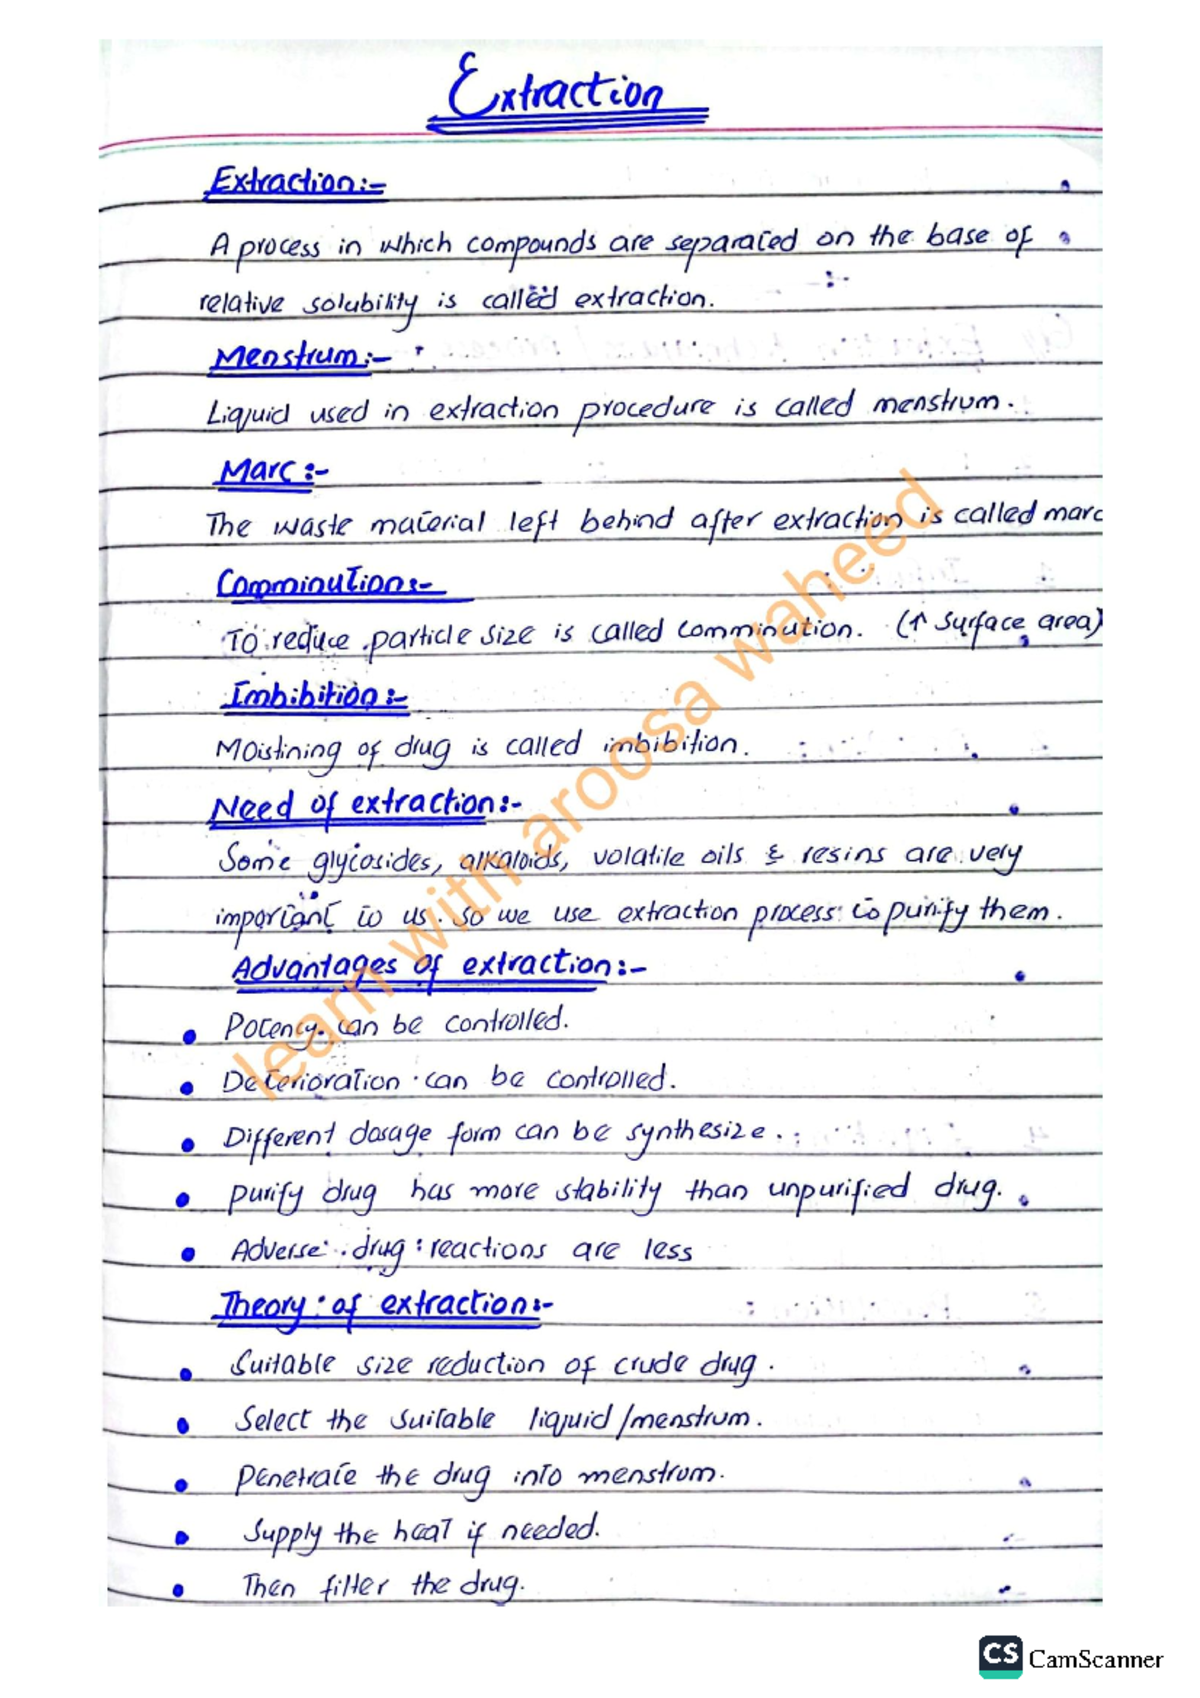 Extraction
Extraction:-
A process in which compounds are separated on the base of
relative solubility is called extraction.
Menstrum:-
Liquid used in extraction procedure is called menstrum.
Marc:-
The waste material left behind after extraction is called marc
Comminution:-
To reduce particle size is called comminution. (↑ surface area)
Imbibition:-
Moistining of drug is called imbibition.
Need of extraction:-
Some glycosides, alkaloids, volatile oils & resins are very
important to us. so we use extraction process to purify them.
Advantages of extraction:-
• Potency can be controlled.
• Deterioration can be controlled.
• Different dosage form can be synthesize.
• purify drug has more stability than unpurified drug.
• Adverse drug reactions are less
Theory of extraction:-
• Suitable size reduction of crude drug.
• Select the suitable liquid/menstrum.
• Penetrate the drug into menstrum.
• Supply the heat if needed.
• Then filter the drug.
learn with aroosa waheed
CS CamScanner